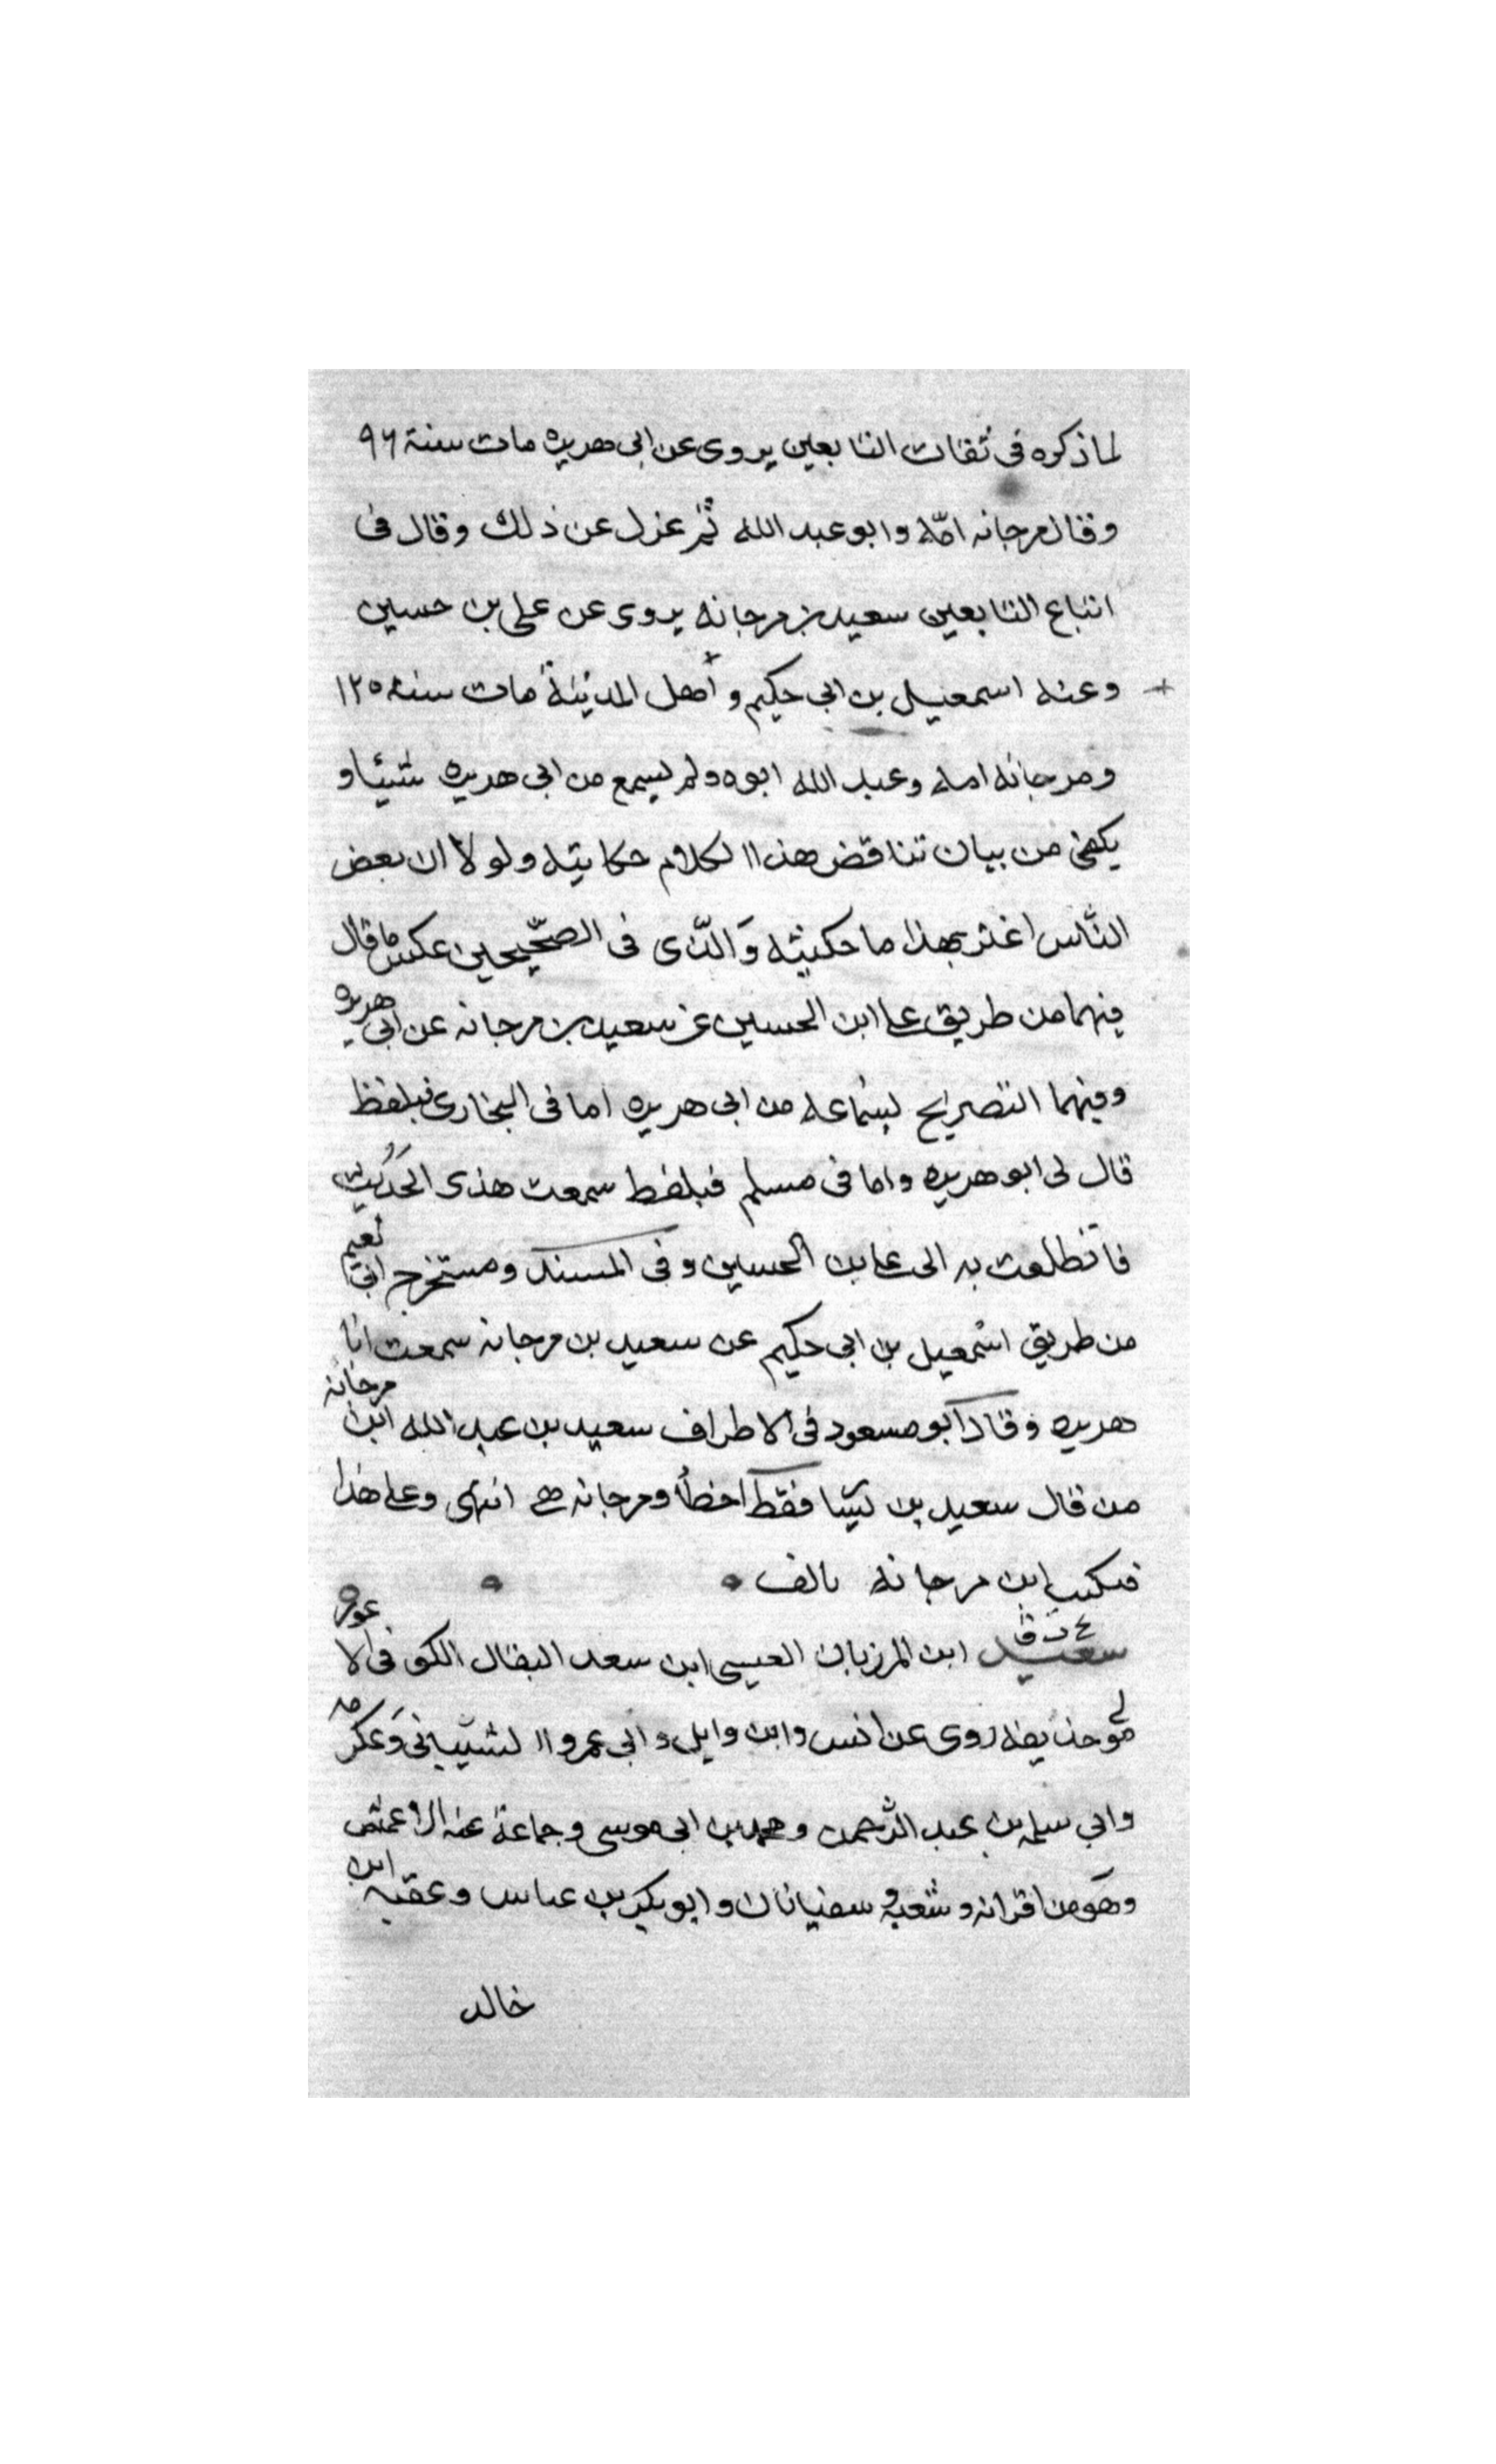 لما ذكره في ثقات التابعين يروى عن ابى هريره مات سنة ٩٦
وقال مرجانه امّه وابو عبد الله ثمّ عزل عن ذلك وقال فى
اتباع التابعين سعيد بن مرجانه يروى عن على بن حسين
وعنه اسمعيل بن ابى حكيم و أهل المدينة مات سنه ١٢٥
ومرجانه امه وعبد الله ابوه ولم يسمع من ابى هريره شيئا و
يكفى من بيان تناقض هذا الكلام حكايته ولولا ان بعض
النّاس اغتر بهذا ما حكيته وَالّذى فى الصحّيحين عكس ما قال
فيهما من طريق على ابن الحسين عن سعيد بن مرجانه عن ابى هريره
وفيهما التصريح بسماعه من ابى هريره اما فى البخارى فبلفظ
قال لى ابو هريره واما فى مسلم فبلفظ سمعت هذى الحَدُيث
فانطلعت به الى على بن الحسين وفى المسند ومستخرج ابى نعيم
من طريق اسمعيل بن ابى حكيم عن سعيد بن مرجانه سمعت ابا
هريره وقال ابو مسعود فى الاطراف سعيد بن عبد الله ابن مرجانه
من قال سعيد بن يسّا فقط اخطأ ومرجانه هى انتهى وعلى هذا
فيكتب ابن مرجانه بالف
سعيد ابن المرزبان العيسى ابن سعد البقال الكوفى الا عور
مولى حذيفه روى عن انس وابن وايل و ابى عمرو الشّيبانى وَعكرمه
وابي سلمه بن عبد الرّحمن ومحمد بن ابى موسى وجماعة عنه الاعمش
وهو من اقرانه وشعبه و سفيانان وابو بكر بن عباس وعقبه ابن
خالد